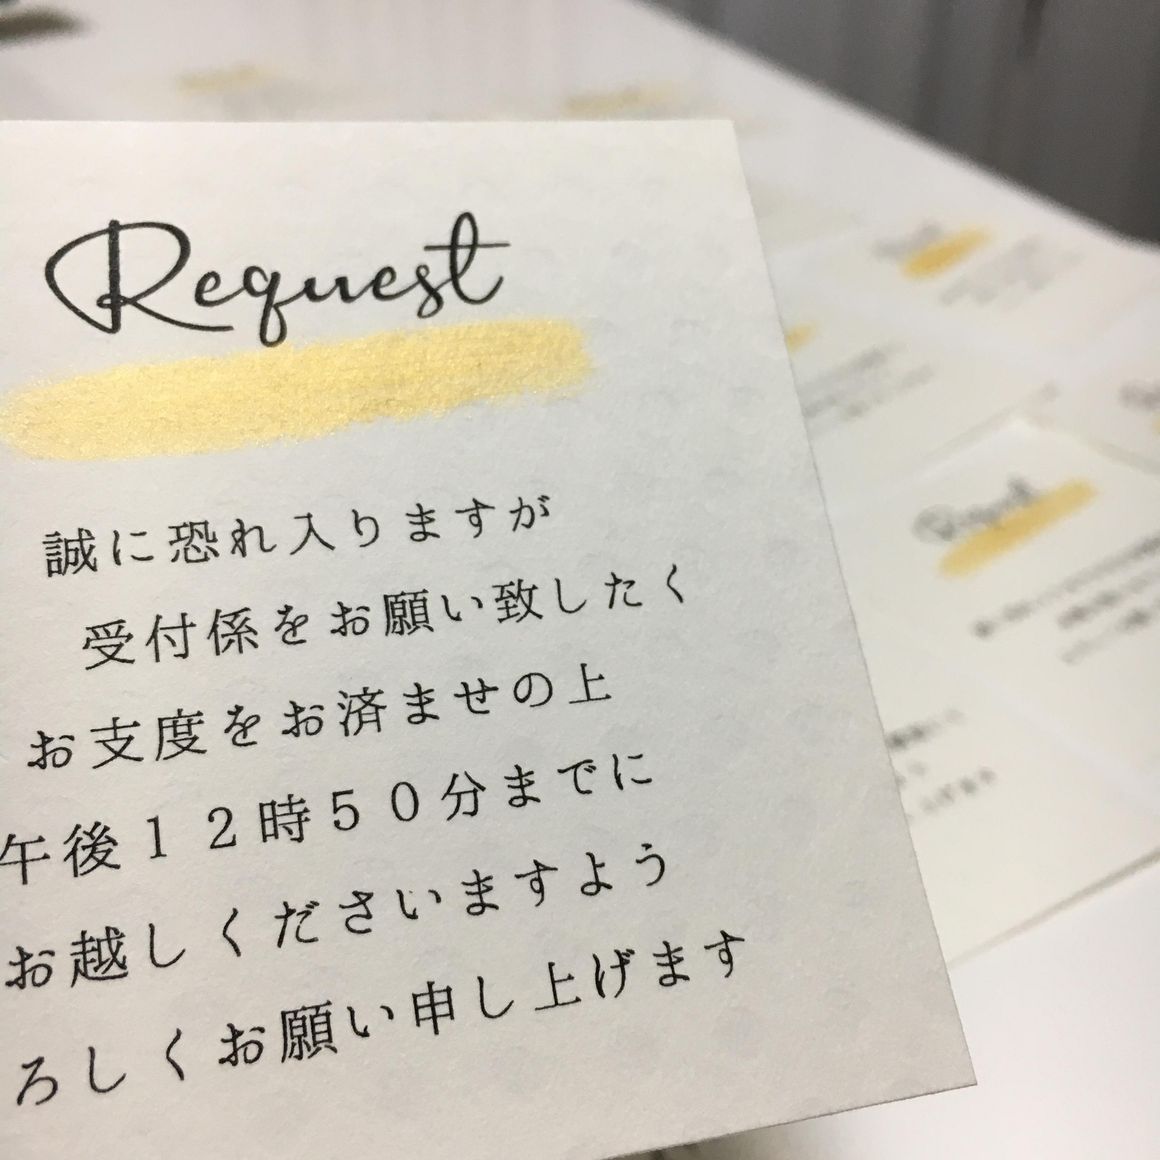 Request
誠に恐れ入りますが
受付係をお願い致したく
お支度をお済ませの上
午後１２時５０分までに
お越しくださいますよう
ろしくお願い申し上げます